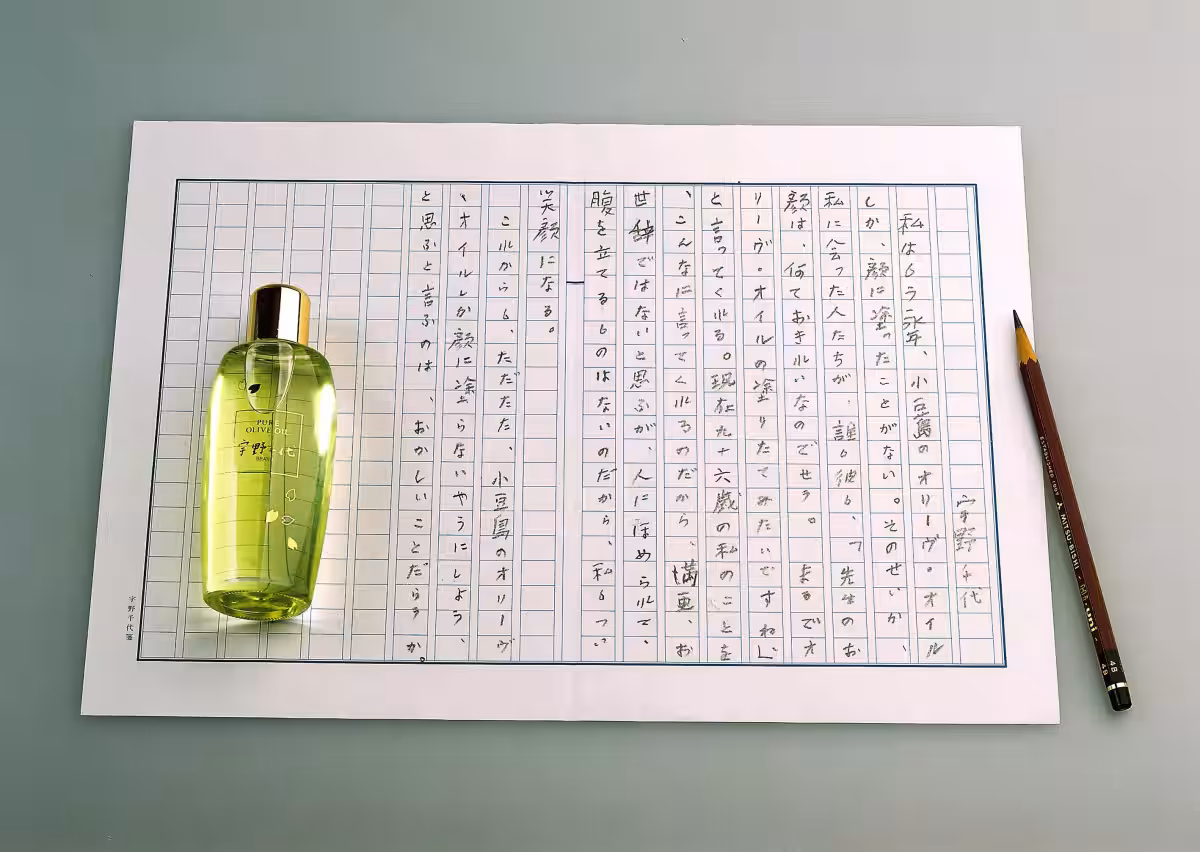 宇野千代
私はもう永年、小豆島のオリーヴ・オイル
しか、顔に塗ったことがない。そのせいか、
私に会った人たちが、誰も彼も、「先生のお
顔は、何ておきれいなのでせう。まるでオ
リーヴ・オイルの塗りたてみたいですね」
と言ってくれる。現在九十六歳の私のことを
、こんなに言ってくれるのだから、満更、お
世辞ではないと思ふが、人にほめられて、
腹を立てるものはないのだから、私もつい
笑顔になる。
これからも、ただただ、小豆島のオリーヴ
・オイルしか顔に塗らないやうにしよう、
と思ふと言ふのは、おかしいことだらうか。
宇野千代箋
PURE
OLIVE OIL
宇野千代
BRAND
MITSU-BISHI
uni
4B
4B